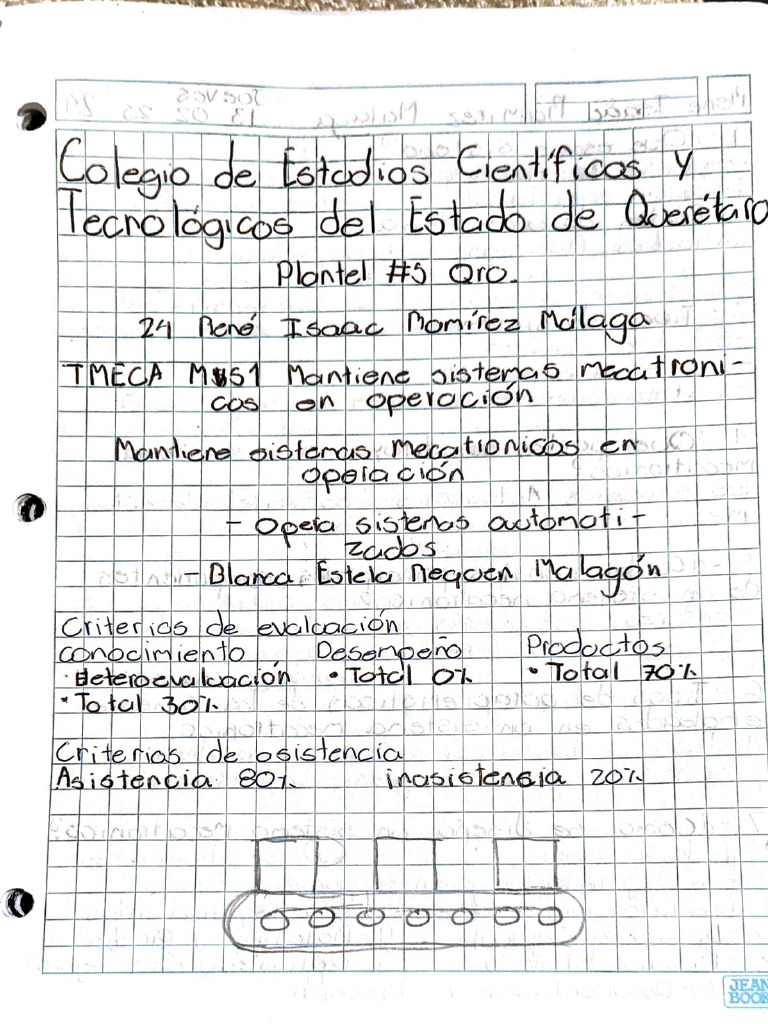 Colegio de Estudios Científicos y
Tecnológicos del Estado de Querétaro
Plantel #5 Qro.
24 René Isaac Ramírez Málaga
TMECA M5S1 Mantiene sistemas mecatroni-
cos en operación
Mantiene sistemas mecatronicos en
operación
- Opera sistemas automati-
zados
- Blanca Estela Neguen Malagón
Criterios de evaluación
conocimiento Desempeño Productos
· Heteroevaluación • Total 0% • Total 70%
• Total 30%
Criterias de asistencia
Asistencia 80% inasistensia 20%
JEAN
BOOK